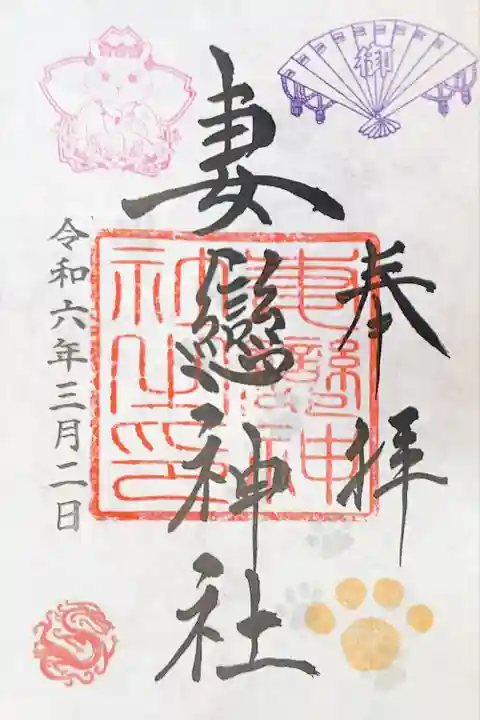 御
奉拝
妻戀神社
妻戀神社之印
令和六年三月二日